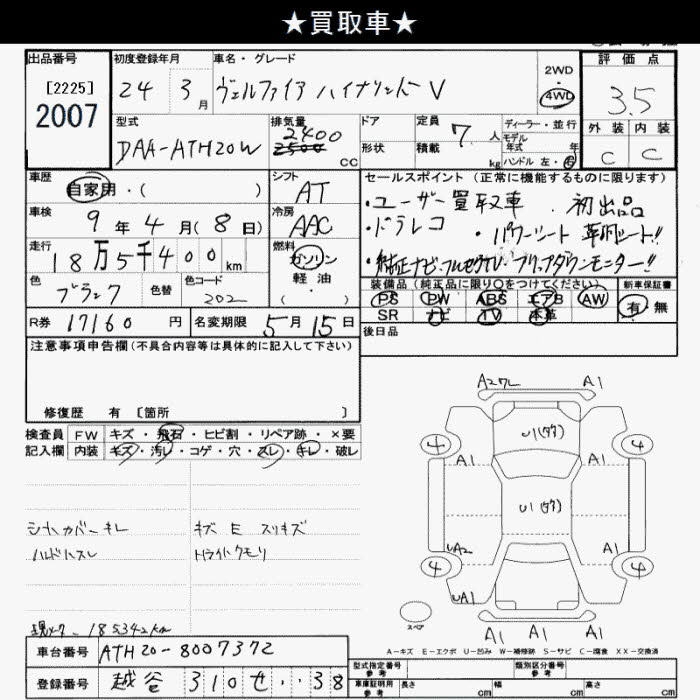 ★買取車★
出品番号 初度登録年月 車名・グレード 2WD 4WD 評価点
[2225] 2007
24 3月 ヴェルファイア ハイブリッド V
3.5
型式 排気量 ドア 定員 ディーラー・並行
DAA-ATH20W 2400 2500 cc 形状 積載 7人 kg モデル年式 年 ハンドル 左・右
外装 内装
C C
車歴 自家用・( ) シフト AT
セールスポイント (正常に機能するものに限ります)
車検 9年4月(8日) 冷房 AAC
・ユーザー買取車 初出品
・ドラレコ ・パワーシート 革調シート!!
・純正ナビ・フルセグTV・フリップダウンモニター!!
走行 18万5千400km 燃料 ガソリン 軽油 ・( )
色 ブラック 色替 色コード 202
装備品 (純正品に限り○をつけてください) 新車保証書
PS PW ABS エアB AW 有 無
SR ナビ TV 本革
R券 17160円 名変期限 5月15日
後日品
注意事項申告欄(不具合内容等は具体的に記入して下さい)
修復歴 有 〔箇所 〕
検査員 FW キズ・飛石・ヒビ割・リペア跡・×要
記入欄 内装 キズ・汚レ・コゲ・穴・スレ・キレ・破レ
シートカバーキレ キズ E スリキズ
ハンドルスレ トライトクモリ
A2 A1
U1(タタ)
4 4
A1 A1
U1(タタ)
UA2 A1
4 4
UA1
A1 A1 A1
スペア
A-キズ E-エクボ U-凹み W-補修跡 S-サビ C-腐食 XX-交換済
現メーター 185342km
車台番号 ATH20-8007372
登録番号 越谷 310 せ ・・38
型式指定番号 参考 類別区分番号 参考
車庫証明用 参考 長さ cm 幅 cm 高さ cm